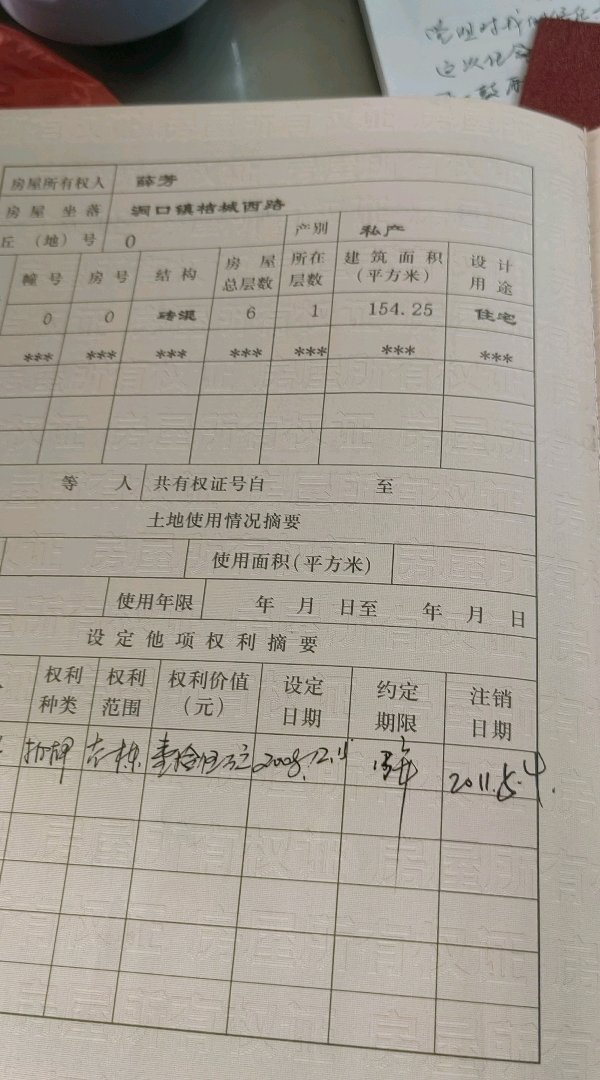 房屋所有权人 薛芳
房屋坐落 洞口镇桔城西路
丘（地）号 0 产别 私产
幢号 房号 结构 房屋总层数 所在层数 建筑面积（平方米） 设计用途
0 0 砖混 6 1 154.25 住宅
*** *** *** *** *** *** ***
等 人 共有权证号自 至
土地使用情况摘要
使用面积(平方米)
使用年限 年 月 日至 年 月 日
设定他项权利摘要
权利种类 权利范围 权利价值（元） 设定日期 约定期限 注销日期
抵押 2008.12. 2011.5.4.